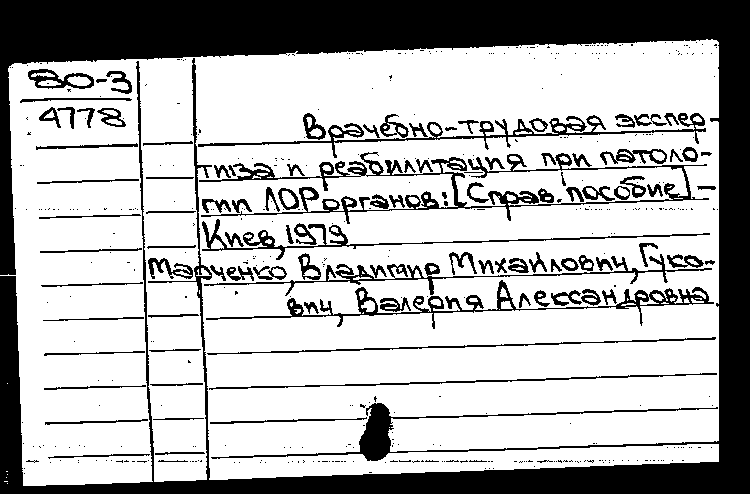 80-3
4778
Врачебно-трудовая экспер-
тиза и реабилитация при патоло-
гии ЛОРорганов: [Справ. пособие] -
Киев, 1979.
Марченко, Владимир Михайлович, Гуко-
вич, Валерия Александровна.